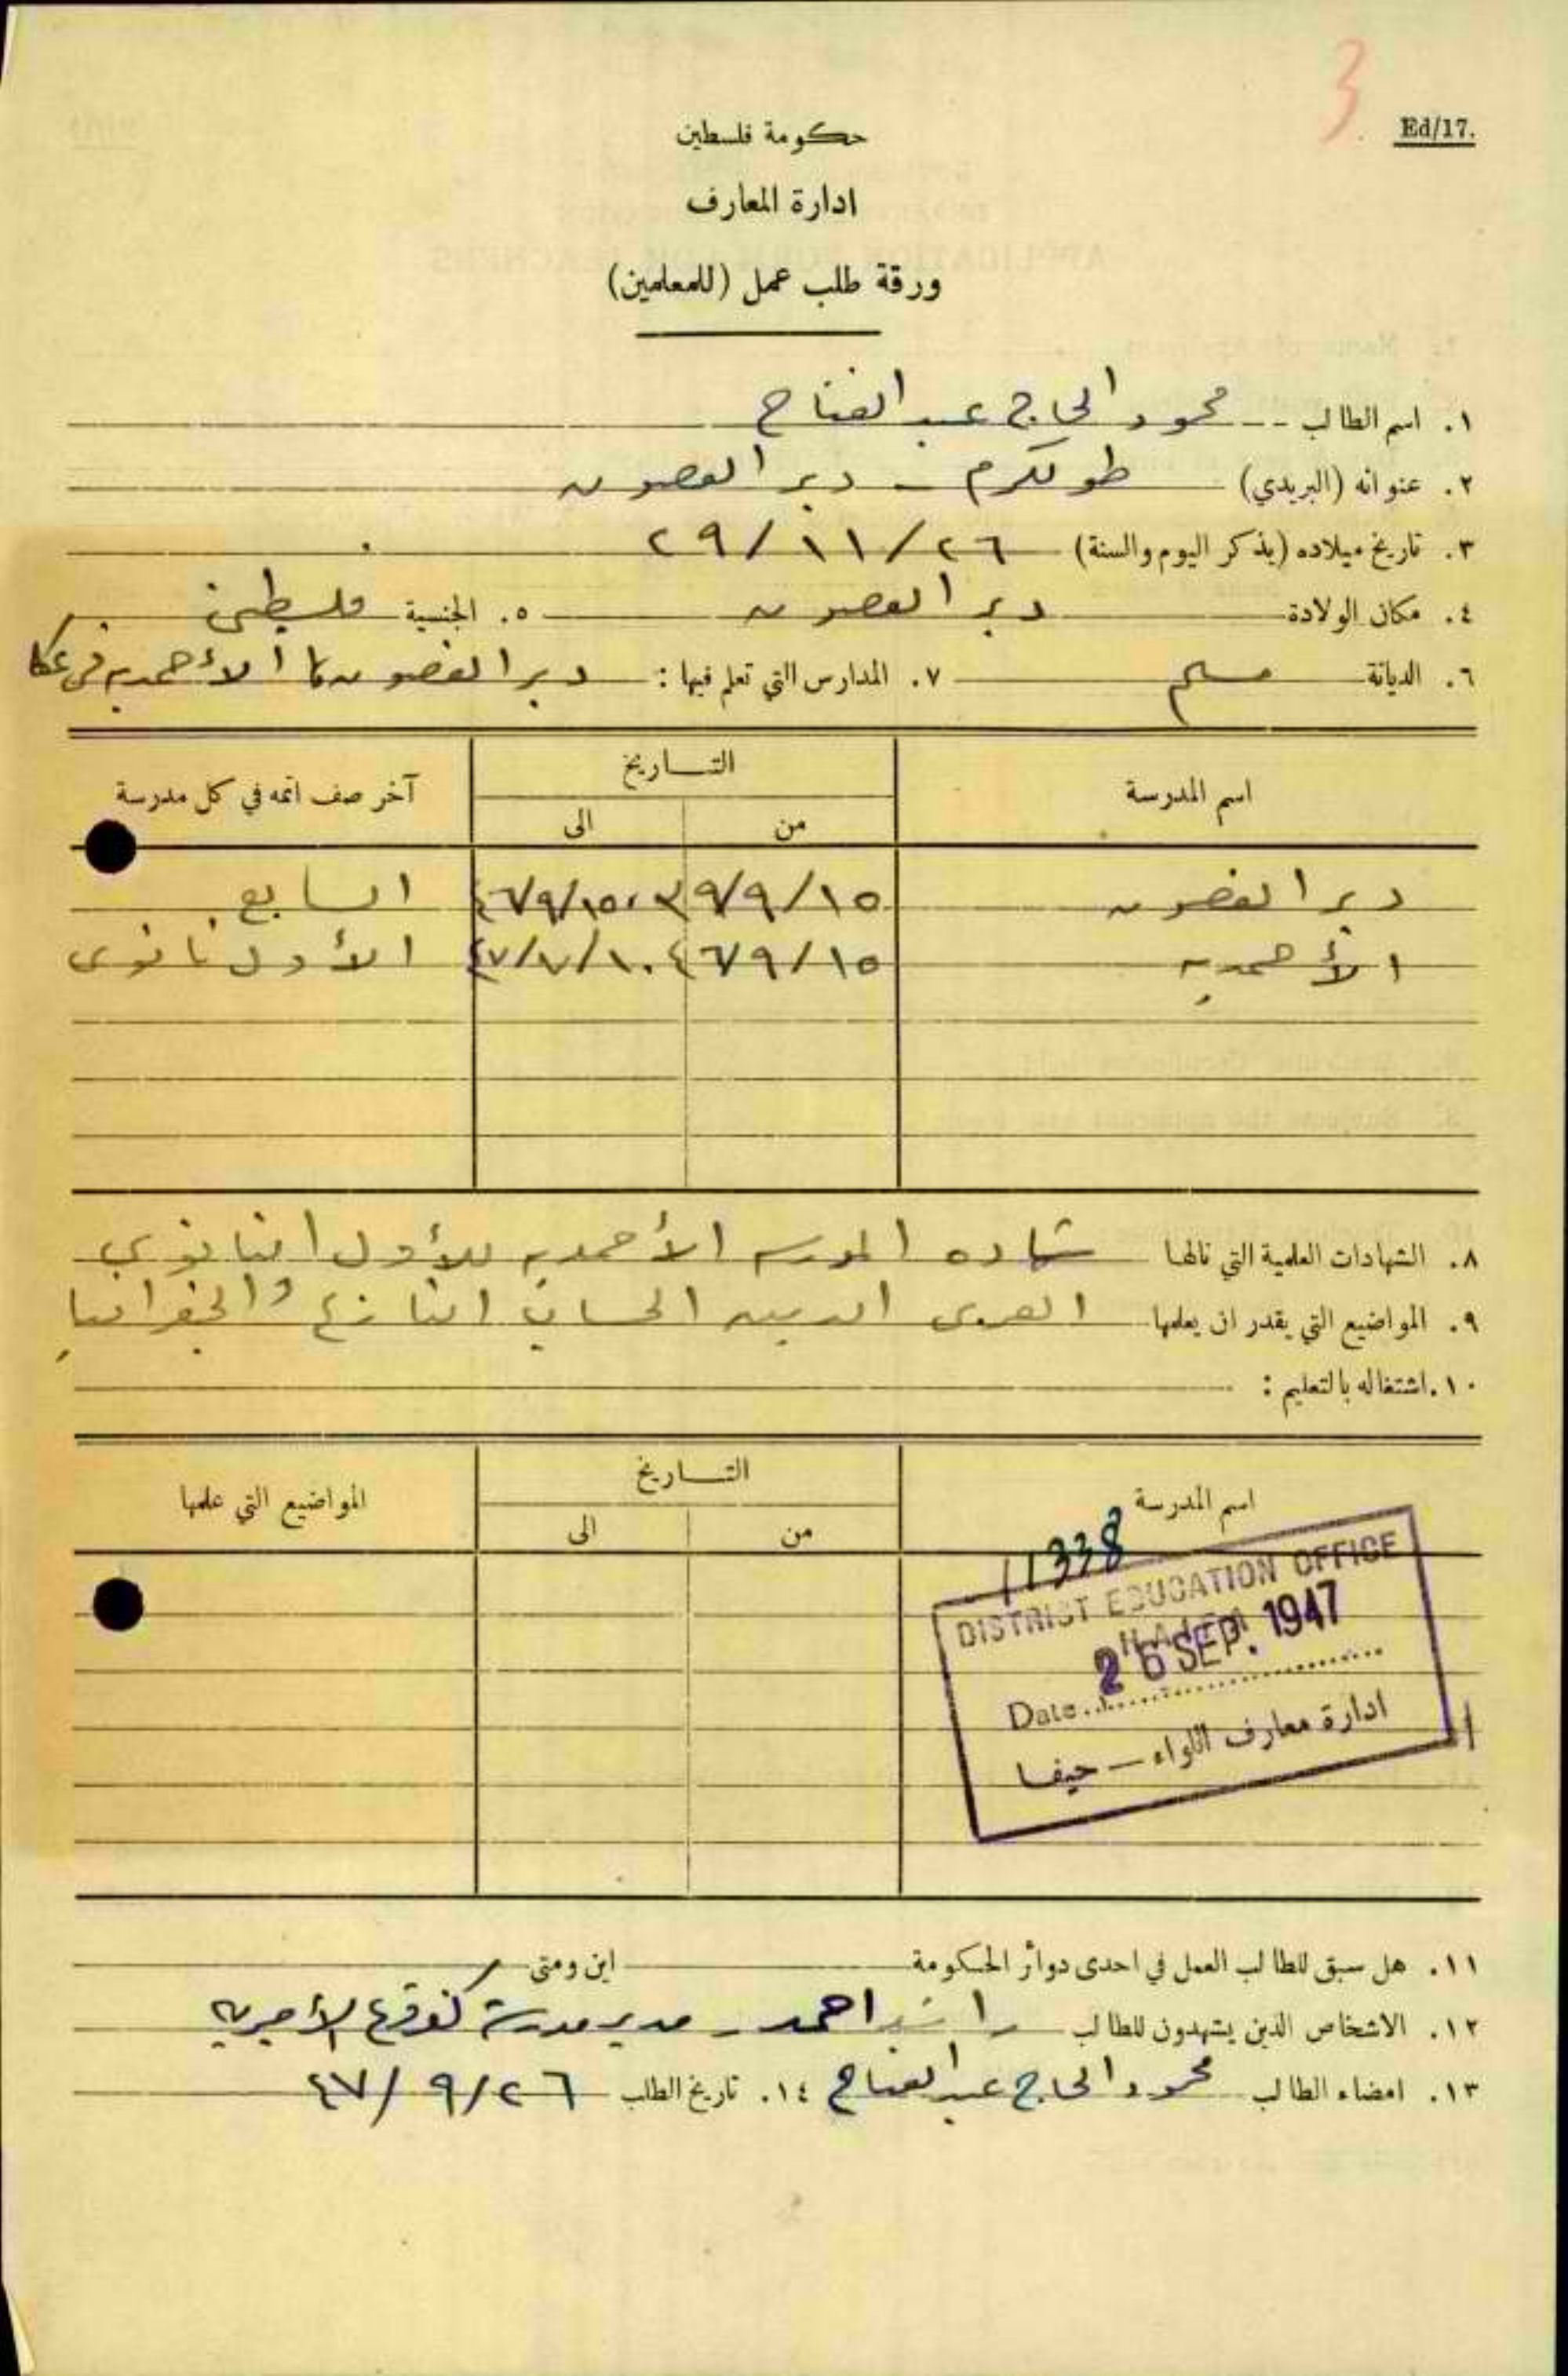 3
Ed/17.
حكومة فلسطين
ادارة المعارف
ورقة طلب عمل (للمعلمين)
١. اسم الطالب محمود الحاج عبد الفتاح
٢. عنوانه (البريدي) طولكرم - دير الغصون
٣. تاريخ ميلاده (يذكر اليوم والسنة) ٢٦/١١/٢٩
٤. مكان الولادة دير الغصون ٥. الجنسية فلسطيني
٦. الديانة مسلم ٧. المدارس التي تعلم فيها: دير الغصون الأحمديه في عكا
اسم المدرسة التاريخ آخر صف اتمه في كل مدرسة
من الى
دير الغصون ١٥/٩/٣٩ ١٥/٩/٤٦ السابع
الأحمديه ١٥/٩/٤٦ ١٠/٧/٤٧ الأول ثانوي
٨. الشهادات العلمية التي نالها شهاده المدرسه الأحمديه للأول الثانوي
٩. المواضيع التي يقدر ان يعلمها العربي الدين الحساب التاريخ والجغرافيا
١٠. اشتغاله بالتعليم:
اسم المدرسة التاريخ المواضيع التي علمها
من الى
11338
DISTRICT EDUCATION OFFICE
HAIFA
26 SEP. 1947
Date
ادارة معارف اللواء — حيفا
١١. هل سبق للطالب العمل في احدى دوائر الحكومة اين ومتى
١٢. الاشخاص الذين يشهدون للطالب راشد احمد - مدير مدرسة الأميريه
١٣. امضاء الطالب محمود الحاج عبد الفتاح ١٤. تاريخ الطلب ٢٦/٩/٤٧